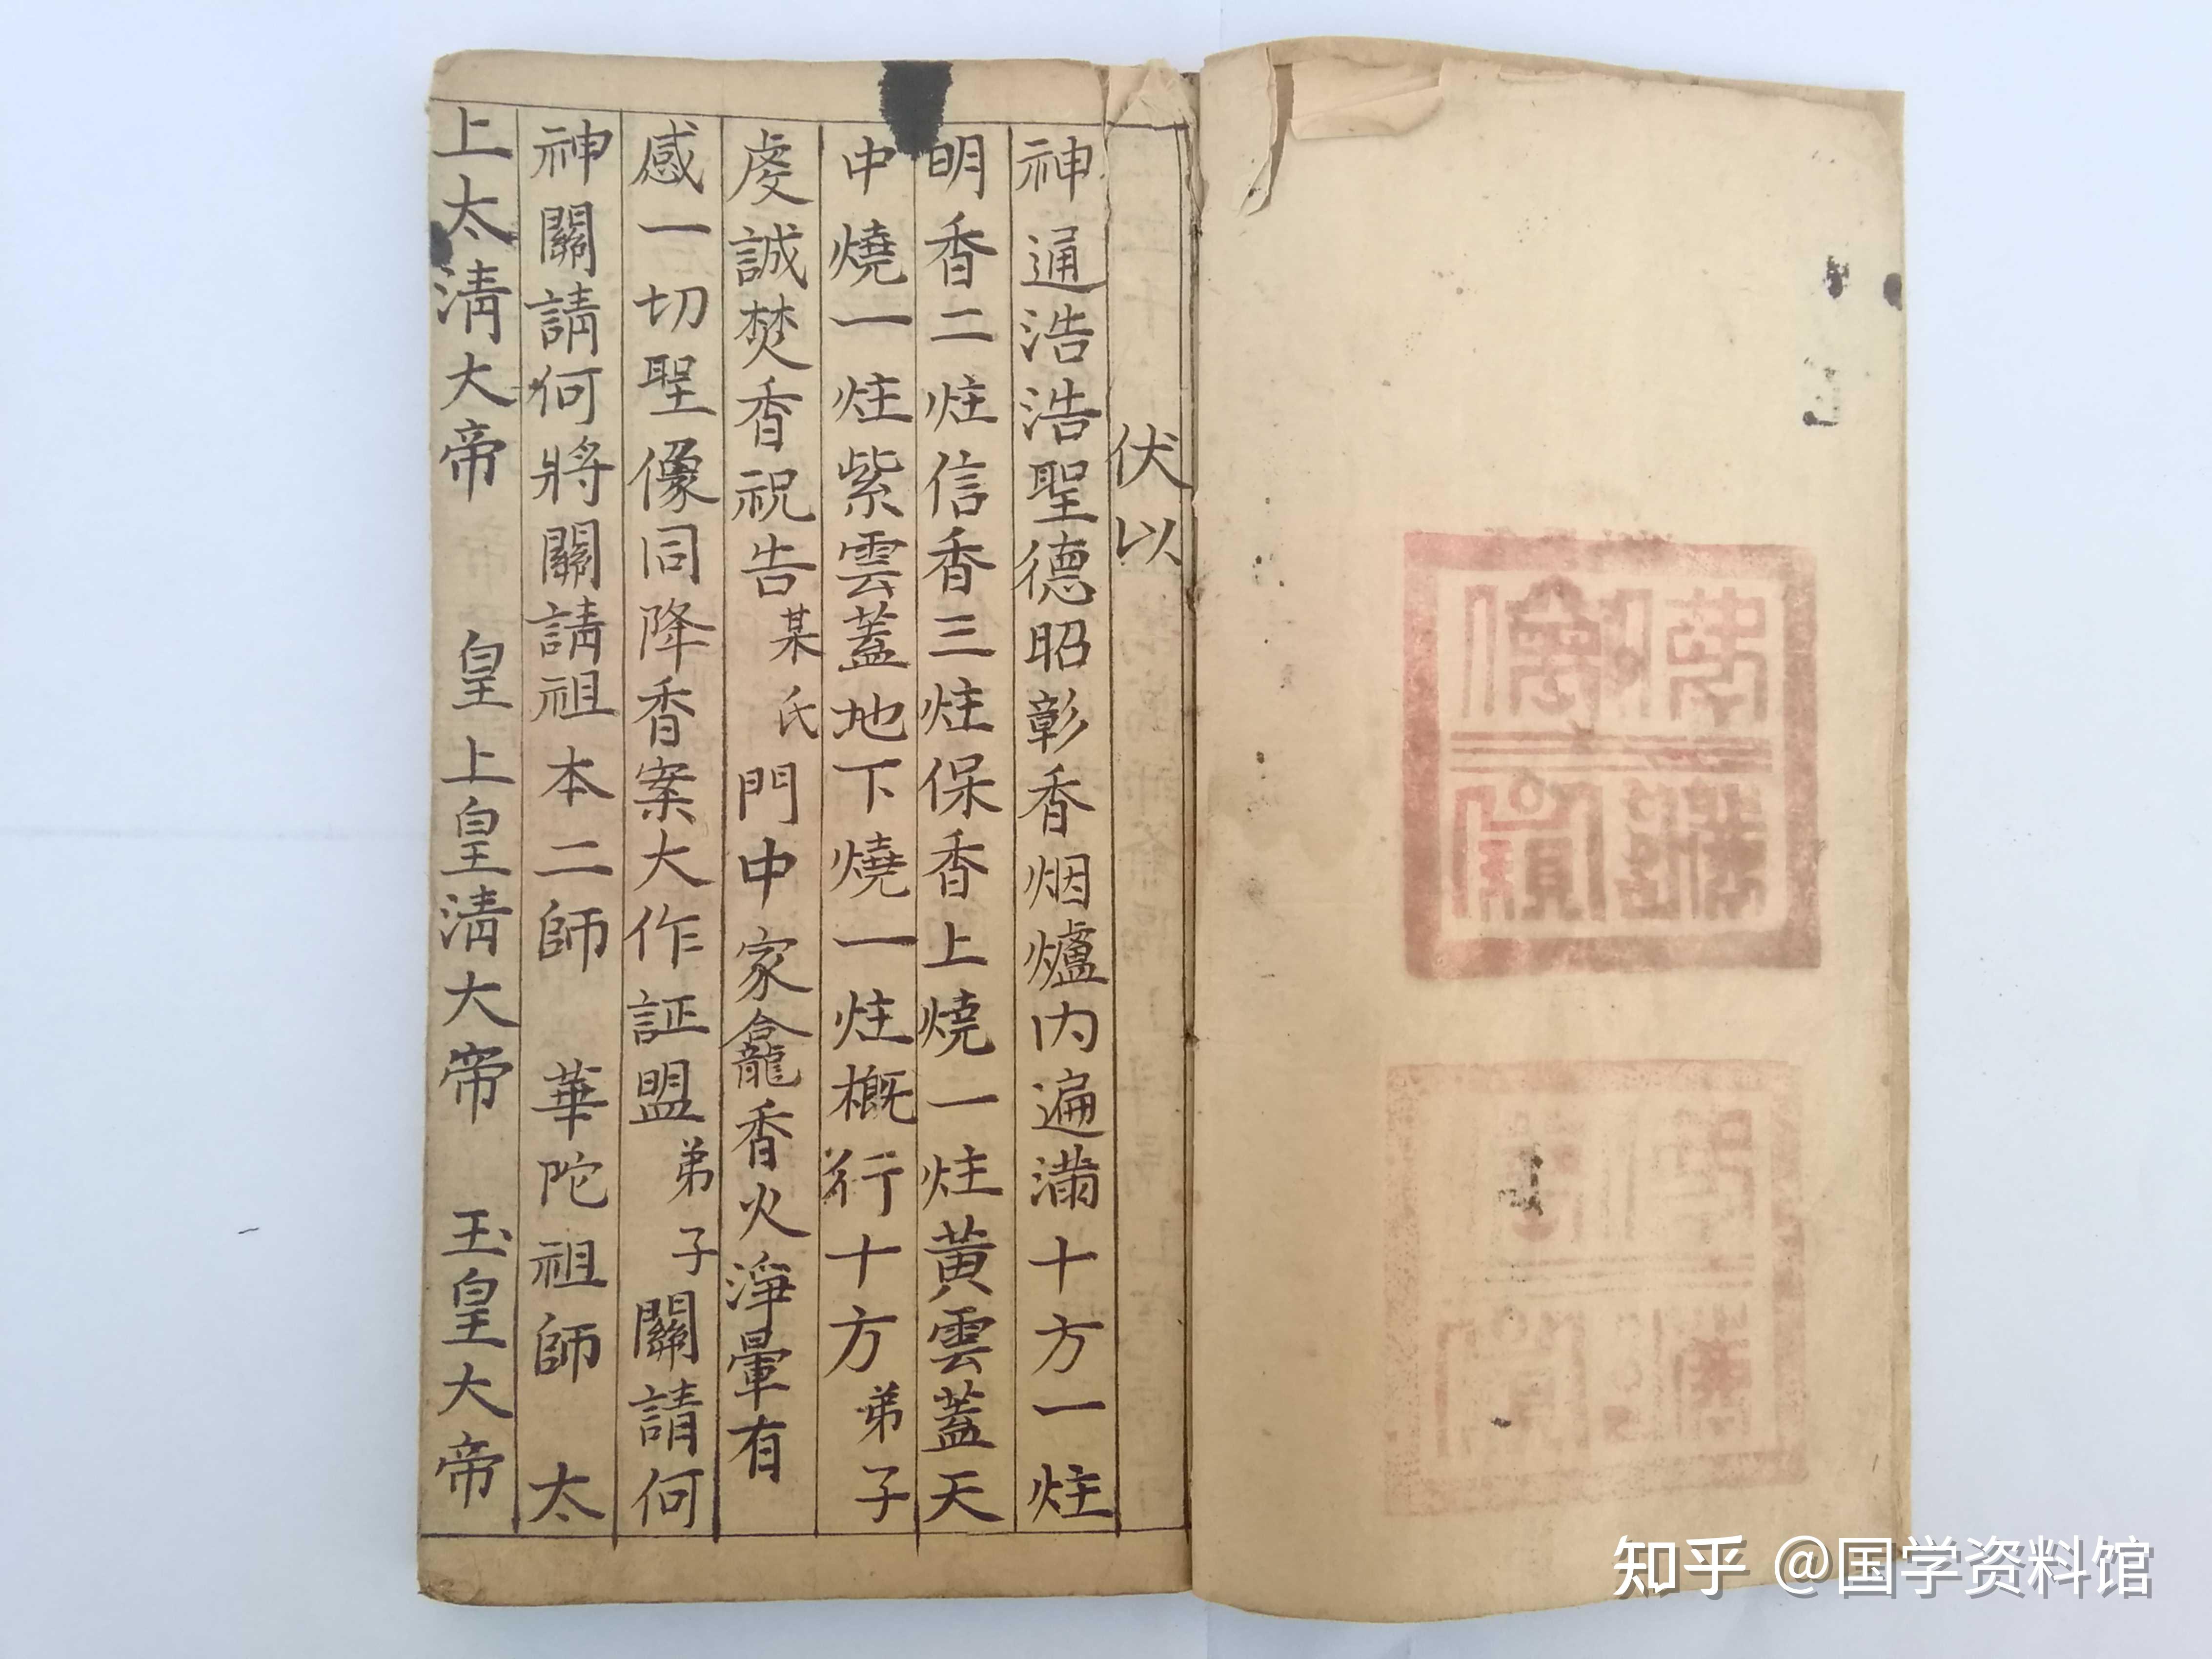 伏以
神通浩浩聖德昭彰香烟爐內遍滿十方一炷
明香二炷信香三炷保香上燒一炷黃雲蓋天
中燒一炷紫雲蓋地下燒一炷概行十方弟子
虔誠焚香祝告某氏門中家龕香火淨暈有
感一切聖像同降香案大作証盟弟子關請何
神關請何將關請祖本二師 華陀祖師 太
上太清大帝 皇上皇清大帝 玉皇大帝
知乎 @国学资料馆